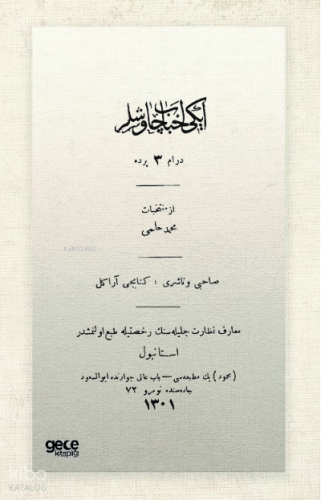 ایکی احباب چاوشلر
درام ٣ پرده
از منتخبات
محمد حلمی
صاحبی و ناشری : کتابجی آراکل
معارف نظارت جلیله‌سنك رخصتیله طبع اولنمشدر
استانبول
( محمود ) بك مطبعه‌سی — باب عالی جوارنده ابوالسعود
جاده‌سنده نومرو ٧٢
١٣٠١
gece
kitaplığı
kibo
KATALOG